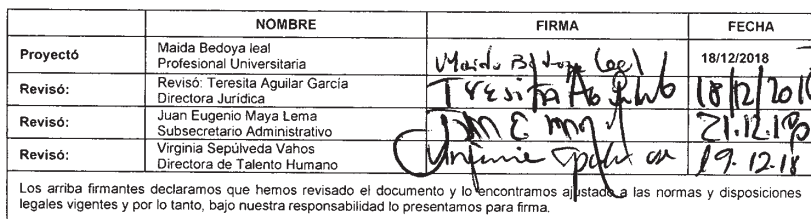 NOMBRE FIRMA FECHA
Proyectó Maida Bedoya leal
Profesional Universitaria Maida Bedoya Leal 18/12/2018
Revisó: Revisó: Teresita Aguilar García
Directora Jurídica Teresita Aguilar 18/12/201
Revisó: Juan Eugenio Maya Lema
Subsecretario Administrativo 21.12.18
Revisó: Virginia Sepúlveda Vahos
Directora de Talento Humano 19.12.18
Los arriba firmantes declaramos que hemos revisado el documento y lo encontramos ajustado a las normas y disposiciones
legales vigentes y por lo tanto, bajo nuestra responsabilidad lo presentamos para firma.